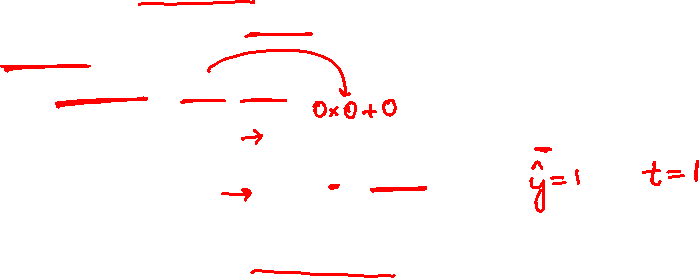 0×0+0
ŷ=1 t=1